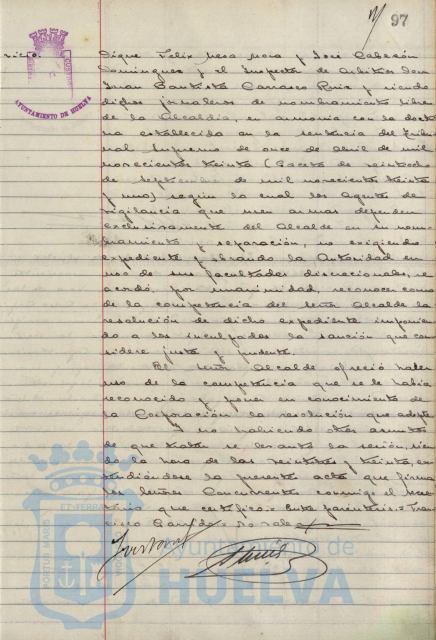 97
vicio.
AYUNTAMIENTO DE HUELVA
Dique Felix Mesa Mora y José Cabezón
Dominguez y el Inspector de Arbitrios Don
Juan Bautista Carrasco Ruiz y siendo
dichos jornaleros de nombramiento libre
de la Alcaldía, en armonia con la doctri
na establecida en la sentencia del Tribu
nal Supremo de once de Abril de mil
novecientos treinta (Gaceta de veintiocho
de Septiembre de mil novecientos treinta
y uno) según la cual los Agentes de
vigilancia que usen armas dependen
exclusivamente del Alcalde en su nom
bramiento y separación, no exigiendo
expediente y obrando la Autoridad en
uso de sus facultades discrecionales, se
acordó, por unanimidad, reconocer como
de la competencia del señor Alcalde la
resolución de dicho expediente imponien
do a los inculpados la sanción que con
sidere justa y prudente.
El señor Alcalde ofreció hacer
uso de la competencia que se le habia
reconocido y poner en conocimiento de
la Corporación la resolución que adopte.
Y no habiendo otros asuntos
de que tratar se levantó la sesión, sien
do la hora de las veintitres y treinta, ex
tendiéndose la presente acta que firman
los señores Concurrentes conmigo el Secre
tario que certifico = Entre parentesis = Fran
cisco Garrido = no vale =
PORTUS MARIS
ET TERRAE
Ayuntamiento de
HUELVA